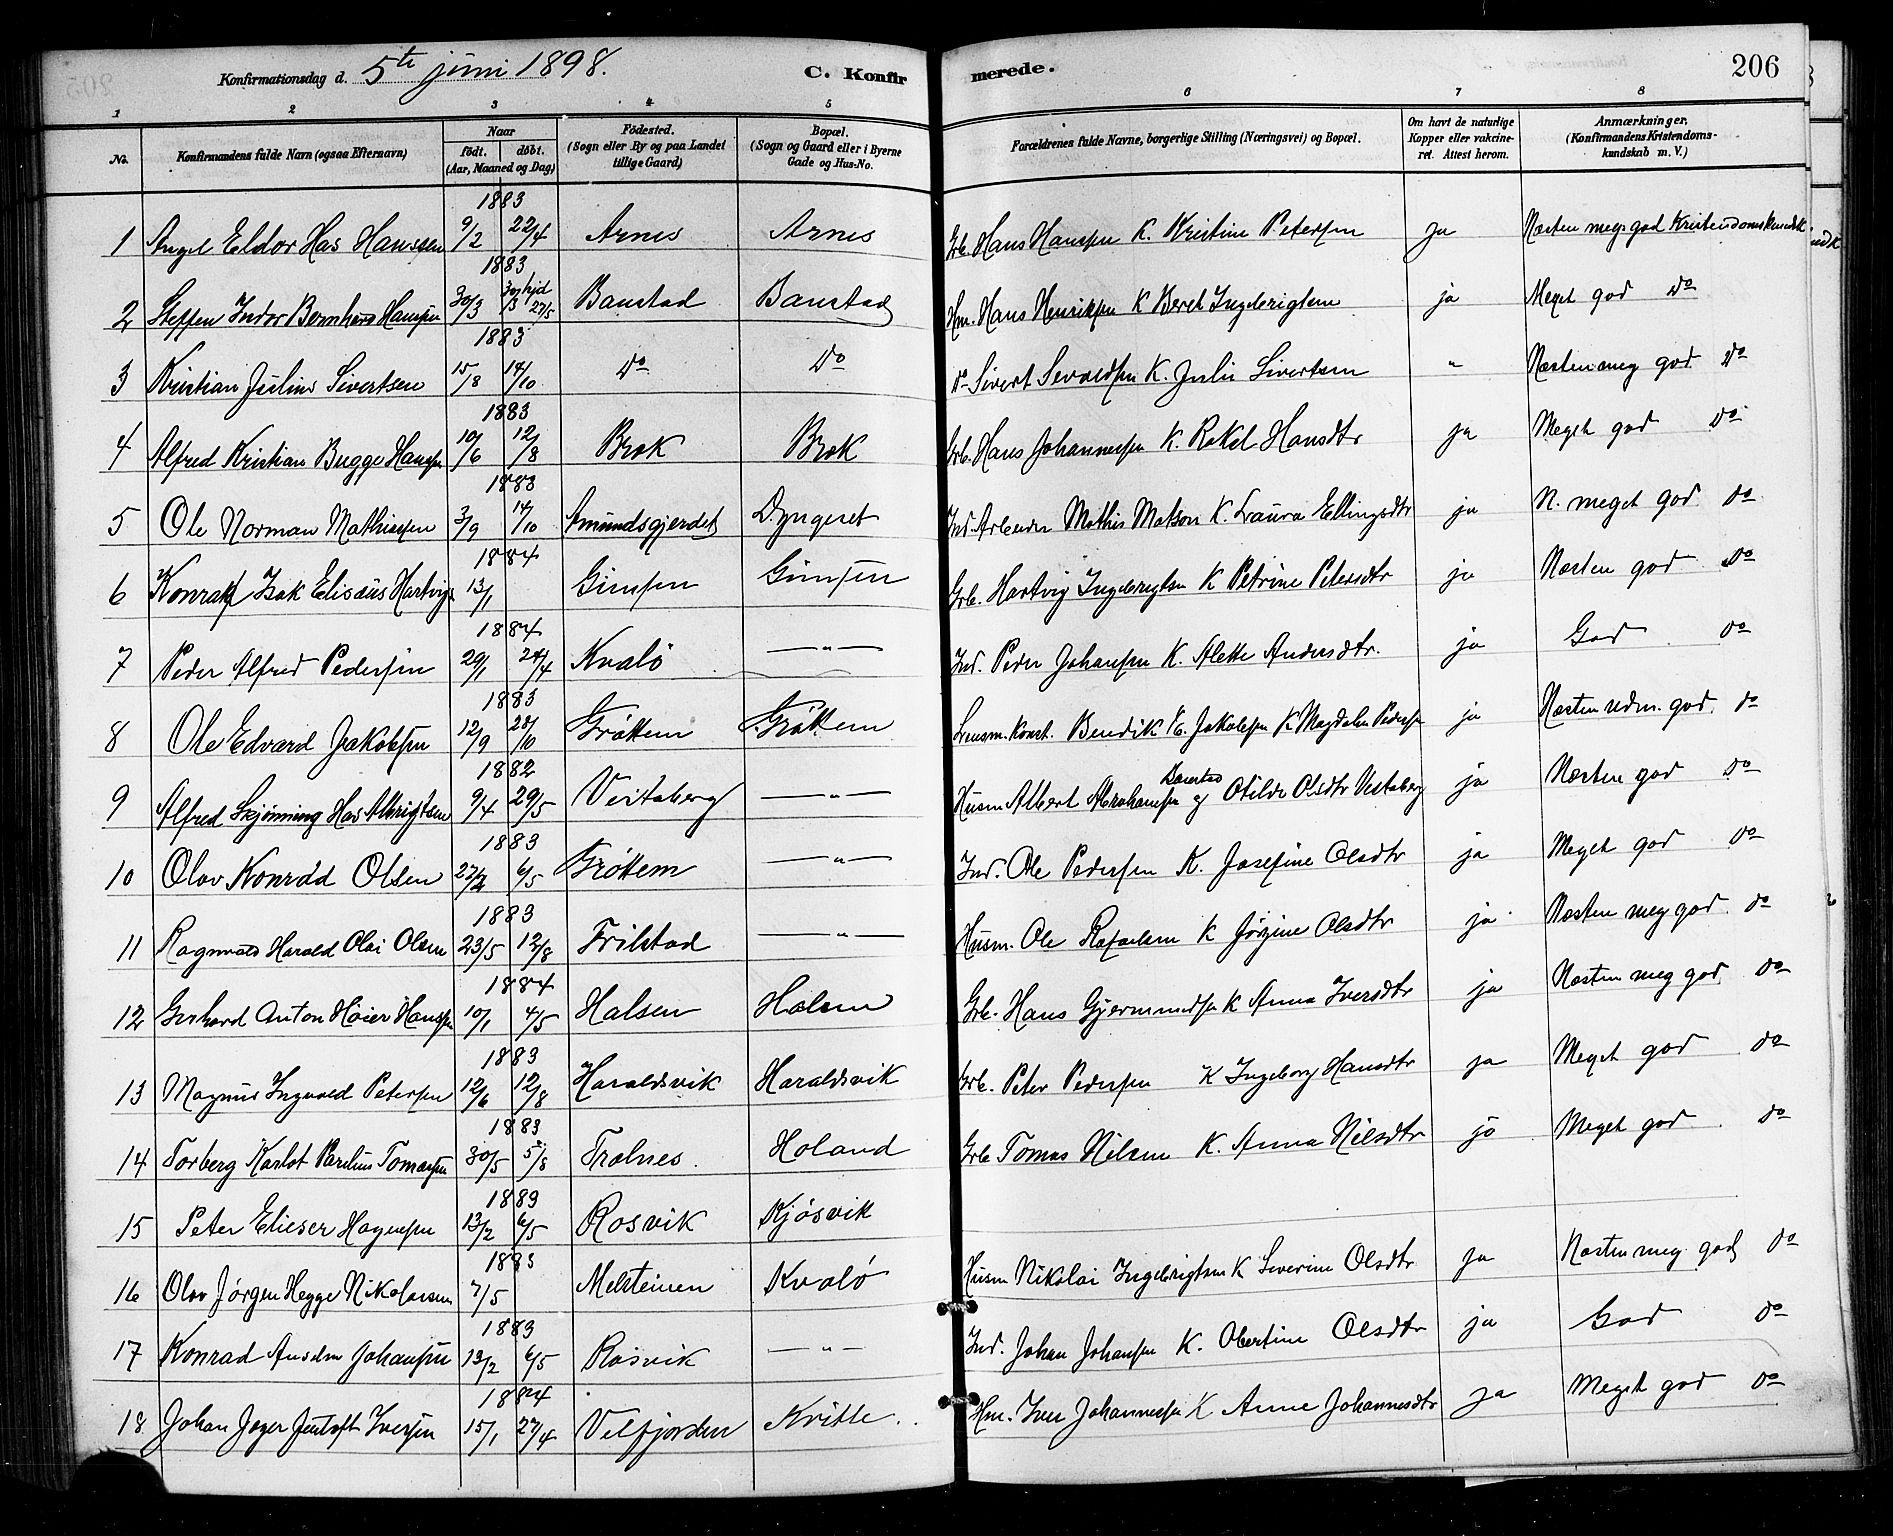 Konfirmationsdag d. 5te juni 1898. C. Konfir merede. 206
1 2 3 4 5 6 7 8
No. Konfirmandens fulde Navn (ogsaa Efternavn) Naar født. døbt. (Aar, Maaned og Dag) Fødested. (Sogn eller By og paa Landet tillige Gaard) Bopæl. (Sogn og Gaard eller i Byerne Gade og Hus-No. Forældrenes fulde Navne, borgerlige Stilling (Næringsvei) og Bopæl. Om havt de naturlige Kopper eller vakcineret. Attest herom. Anmærkninger. (Konfirmandens Kristendomskundskab m. V.)
1883
1 Angel Eldor Has Hanssen 9/2 22/4 Arnes Arnes Grb. Hans Hanssen K. Kristine Petersen ja Næsten meg. god Kristendomskundsk
1883
2 Steffen Indor Bernhard Hansen 30/3 30/3 hjd 27/5 Baustad Baustad Hm. Hans Henriksen K Beret Ingebrigtsen ja Meget god Do
1883
3 Kristian Julius Sivertsen 15/8 14/10 Do Do Do Sivert Sevaldsen K. Julie Sivertsen " Næsten meg god Do
1883
4 Alfred Kristian Bugge Hansen 10/6 12/8 Brok Brok Grb. Hans Johannessen K. Rakel Hansdtr ja Meget god Do
1883
5 Ole Norman Mathiassen 3/9 14/10 Amundsgjerdet Dyngeset Ind. Arbeider Mathis Matson K. Laura Ellingsdtr ja N. meget god do
1884
6 Konrad Isak Elisæus Hartvigs 13/1 Gimsen Gimsen Grb. Hartvig Ingebrigtsen K Petrine Petersdtr ja Næsten god do
1884
7 Peder Alfred Pedersen 29/1 24/4 Kvalö — " — Ind. Peder Johansen K. Alette Andersdtr. ja God do
1883
8 Ole Edvard Jakobsen 12/9 28/10 Gröttem Gröttem Lensm. Konst. Bendik K. Jakobsen K Magdalen Pedersen ja Næsten udm. god. do
1882
9 Alfred Skjönning Has Albrigtsen 9/4 29/5 Vestaberg — " — Husm Albert Abrahamsen Baustad og Otilde Olsdtr Vestaberg ja Næsten god do
1883
10 Olav Konrad Olsen 27/2 6/5 Gröttem — " — Ind. Ole Pedersen K. Josefine Olsdtr ja Meget god do
1883
11 Ragnvald Harald Olai Olsen 23/5 12/8 Trilstad — " — Husm. Ole Rafaelsen K Jörgine Olsdtr ja Næsten meg god do
1884
12 Gerhard Anton Höier Hansen 10/1 4/5 Halsen Halsen Grb. Hans Gjermundsen K Anna Iversdtr ja Næsten meg god do
1883
13 Magnus Ingvald Petersen 12/6 12/8 Haraldsvik Haraldsvik Grb. Peter Pedersen K Ingeborg Hansdtr ja Meget god do
1883
14 Torberg Karlot Parelius Tomassen 30/5 5/8 Tralnes. Holand Grb Tomas Nilsen K. Anna Nilsdtr ja Meget god do
1883
15 Peter Elieser Hagensen 13/2 6/5 Rosvik Kjösvik
1883
16 Olav Jörgen Hegge Nikolaisen 7/5 Melsteinen Kvalö Husm Nikolai Ingebrigtsen K Severine Olsdtr ja Næsten meg. god do
1883
17 Konrad Anselm Johansen 13/2 6/5 Rosvik — " — Ind. Johan Johansen K. Obertine Olsdtr ja God do
1884
18. Johan Jeger Jentoft Iversen 15/1 27/4 Velfjorden Kvitle. Hm. Iver Johannessen K Anne Johannesdtr ja Meget god do